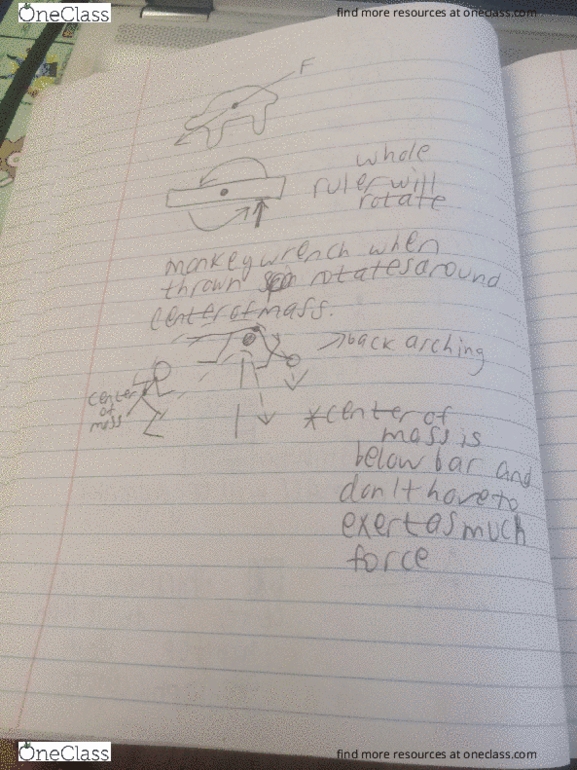 OneClass
find more resources at oneclass.com
F
whole
ruler will
rotate
monkey wrench when
thrown rotates around
center of mass.
→back arching
center
of
mass
*center of
mass is
below bar and
don't have to
exert as much
force
OneClass
find more resources at oneclass.com